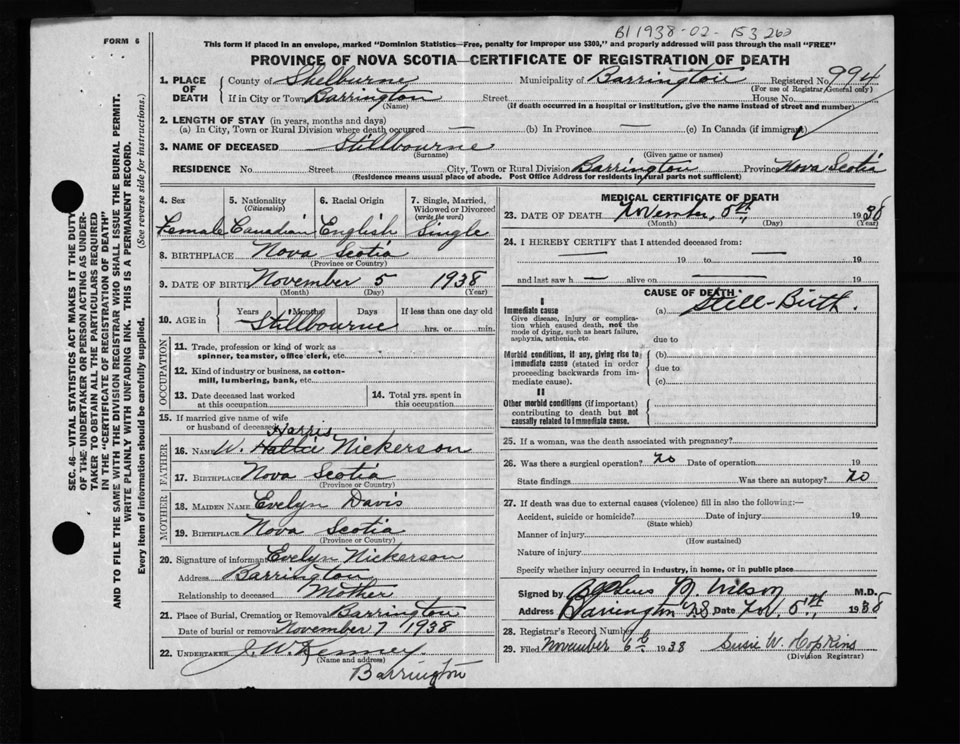 B1 1938-02-153260
FORM 6
This form if placed in an envelope, marked "Dominion Statistics—Free, penalty for improper use $300," and properly addressed will pass through the mail "FREE"
PROVINCE OF NOVA SCOTIA—CERTIFICATE OF REGISTRATION OF DEATH
1. PLACE OF DEATH County of Shelburne Municipality of Barrington Registered No. 994
(For use of Registrar General only)
If in City or Town Barrington Street House No.
(Name) (If death occurred in a hospital or institution, give the name instead of street and number)
2. LENGTH OF STAY (in years, months and days)
(a) In City, Town or Rural Division where death occurred — (b) In Province — (c) In Canada (if immigrant)
3. NAME OF DECEASED Stillbourne
(Surname) (Given name or names)
RESIDENCE No. Street City, Town or Rural Division Barrington Province Nova Scotia
(Residence means usual place of abode. Post Office Address for residents in rural parts not sufficient)
4. Sex 5. Nationality (Citizenship) 6. Racial Origin 7. Single, Married, Widowed or Divorced (write the word)
Female Canadian English Single
8. BIRTHPLACE Nova Scotia
(Province or Country)
9. DATE OF BIRTH November 5 1938
(Month) (Day) (Year)
10. AGE in Years Months Days If less than one day old
Stillbourne hrs. or min.
OCCUPATION
11. Trade, profession or kind of work as spinner, teamster, office clerk, etc.
12. Kind of industry or business, as cotton-mill, lumbering, bank, etc.
13. Date deceased last worked at this occupation
14. Total yrs. spent in this occupation
15. If married give name of wife or husband of deceased
FATHER
Harris
16. NAME W. Hallie Nickerson
17. BIRTHPLACE Nova Scotia
(Province or Country)
MOTHER
18. MAIDEN NAME Evelyn Davis
19. BIRTHPLACE Nova Scotia
(Province or Country)
20. Signature of informant Evelyn Nickerson
Address Barrington
Relationship to deceased Mother
21. Place of Burial, Cremation or Removal Barrington
Date of burial or removal November 7 1938
22. UNDERTAKER J. W. Kenney
(Name and address)
Barrington
MEDICAL CERTIFICATE OF DEATH
23. DATE OF DEATH November, 5th, 1938
(Month) (Day) (Year)
24. I HEREBY CERTIFY that I attended deceased from:
— 19 to — 19
and last saw h — alive on — 19
CAUSE OF DEATH
I
Immediate cause (a) Still-Birth.
Give disease, injury or complication which caused death, not the mode of dying, such as heart failure, asphyxia, asthenia, etc.
due to
Morbid conditions, if any, giving rise to immediate cause (stated in order proceeding backwards from immediate cause).
(b)
due to
(c)
II
Other morbid conditions (if important) contributing to death but not causally related to immediate cause.
25. If a woman, was the death associated with pregnancy?
26. Was there a surgical operation? No Date of operation 19
State findings Was there an autopsy? No
27. If death was due to external causes (violence) fill in also the following:—
Accident, suicide or homicide? Date of injury 19
(State which)
Manner of injury
(How sustained)
Nature of injury
Specify whether injury occurred in industry, in home, or in public place
Signed by M. Wilson M.D.
Address Barrington N.S. Date Nov. 5th, 1938
28. Registrar's Record Number 6
29. Filed November 6th 1938 Susie W. Hopkins
(Division Registrar)
SEC. 46—VITAL STATISTICS ACT MAKES IT THE DUTY
OF THE UNDERTAKER OR PERSON ACTING AS UNDER-
TAKER TO OBTAIN ALL THE PARTICULARS REQUIRED
IN THE "CERTIFICATE OF REGISTRATION OF DEATH"
AND TO FILE THE SAME WITH THE DIVISION REGISTRAR WHO SHALL ISSUE THE BURIAL PERMIT.
WRITE PLAINLY WITH UNFADING INK. THIS IS A PERMANENT RECORD.
Every item of information should be carefully supplied. (See reverse side for instructions.)